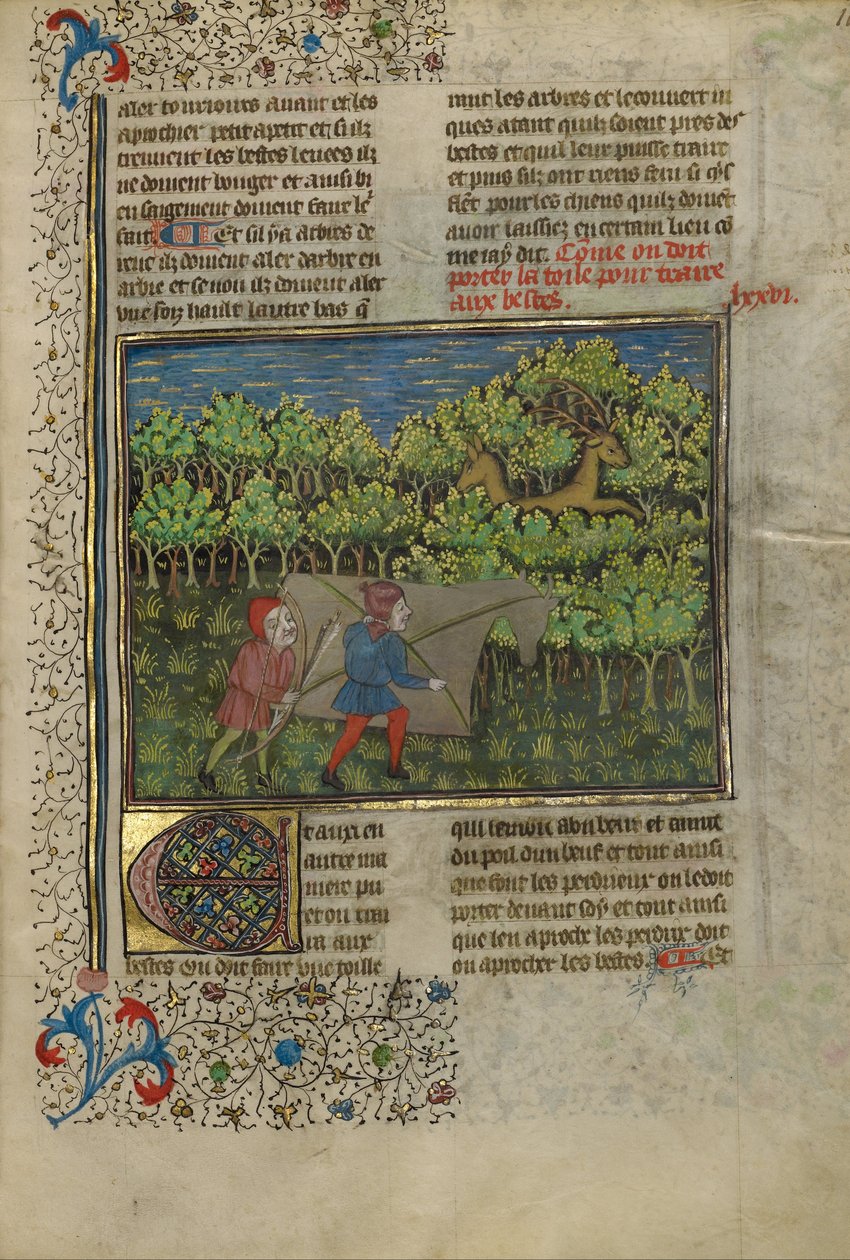 aler tousiours auant et les
aprochier petit apetit et silz
treuuent les bestes leuees ilz
ne doiuent bouger et ainsi bi
en saigement doiuent faire le
fait Et sil ya arbres de
reue ilz doiuent aler darbre en
arbre et se non ilz doiuent aler
vne fois hault lautre bas q̃
les arbres et le couuert iu
ques atant quilz soient pres des
bestes et quil leur puisse traire
et puis silz ont riens feru si
pour les chiens quilz doiuent
auoir laissiez en certain lieu cõ
me iay dit. Cõme on doit
porter la toile pour traire
aux bestes. lxxvi.
E t aussi en
autre ma
niere pu
et on trai
re aux
bestes On doit faire vne toille
qui et
du poil dun beuf et tout ainsi
que font les perdrieux on le doit
porter deuant soy et tout ainsi
que len aproche les perdrix doit
on aprochier les bestes Et